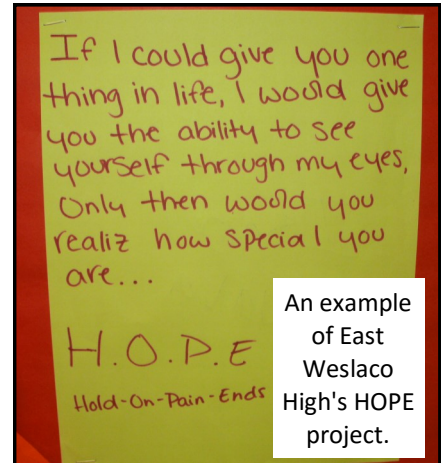 If I could give you one
thing in life, I would give
you the ability to see
yourself through my eyes,
Only then would you
realiz how special you
are...
H.O.P.E
Hold-On-Pain-Ends
An example
of East
Weslaco
High's HOPE
project.